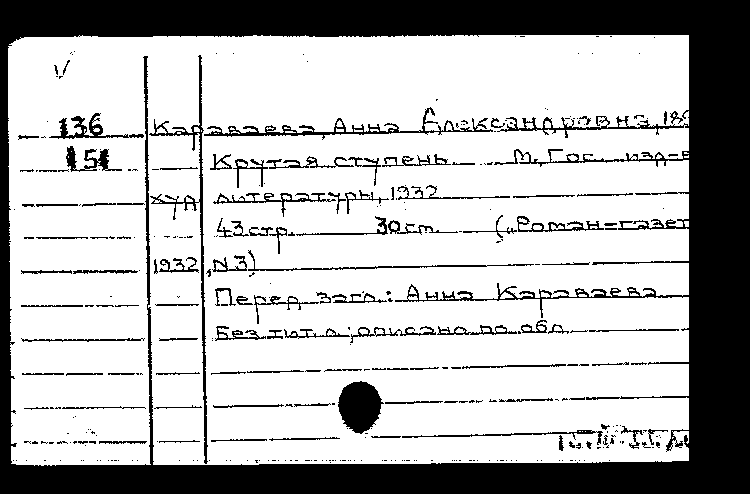 136 Караваева, Анна Александровна, 189
151 Крутая ступень. М., Гос. изд-в
худ. литературы, 1932
43 стр. 30 см. („Роман-газет
1932, N.3)
Перед загл.: Анна Караваева
Без тит. л.; описано по обл.